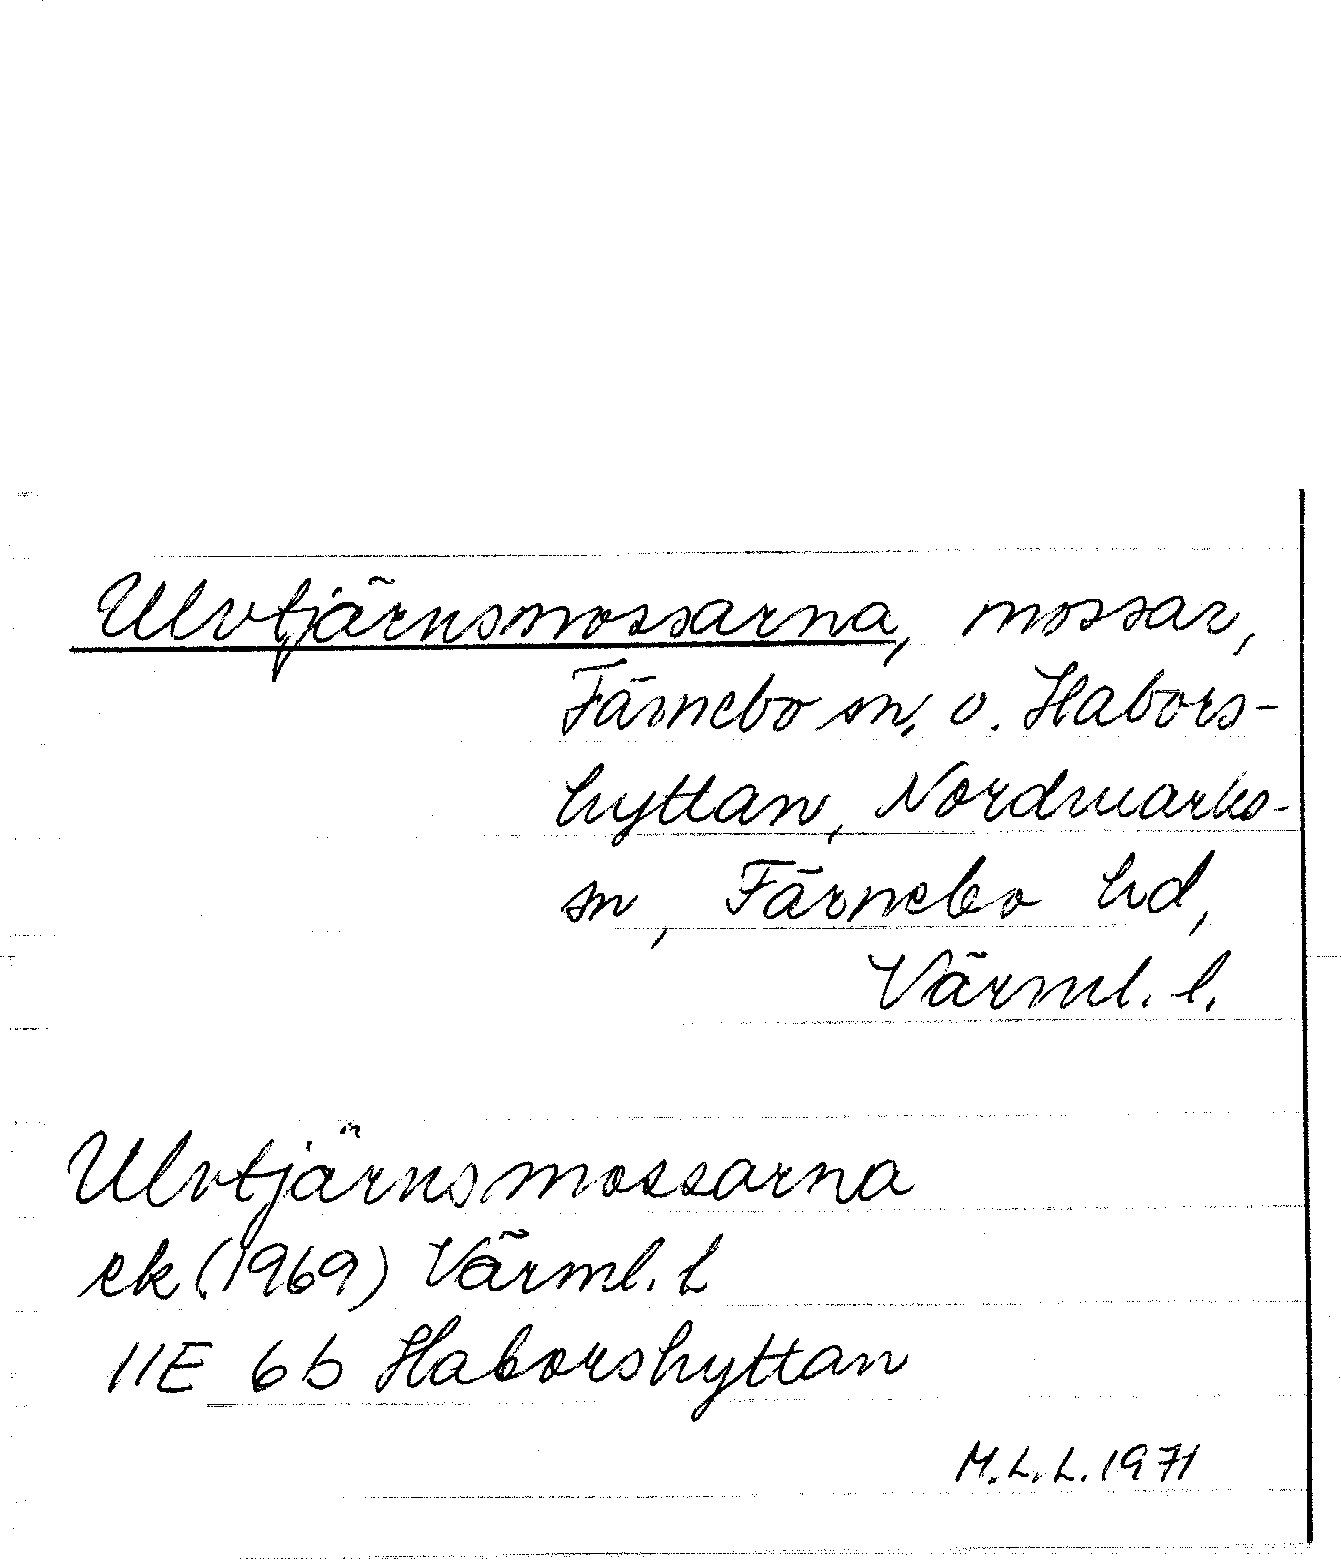 Ulvtjärnsmossarna, mossar,
Färnebo sn, o. Habors-
hyttan, Nordmarks-
sn, Färnebo hd,
Värml. l.
Ulvtjärnsmossarna
ek (1969) Värml. L
11E 6b Haborshyttan
M.L.L. 1971